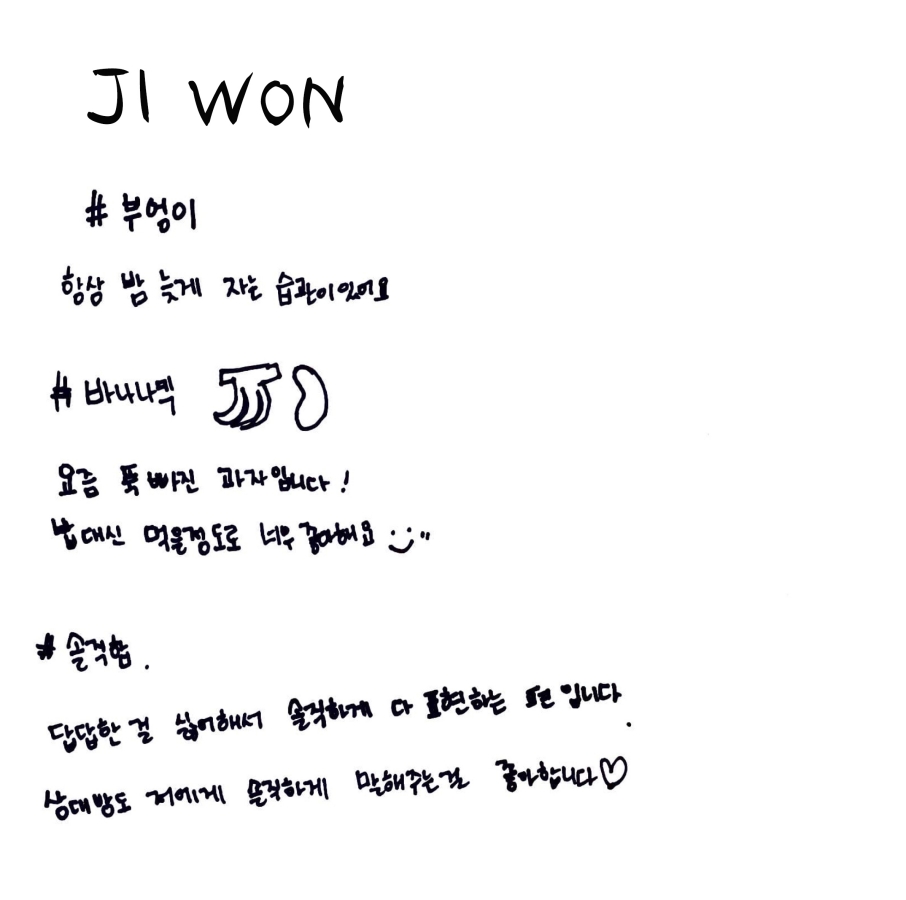 JI WON
# 부엉이
항상 밤 늦게 자는 습관이있어요
# 바나나킥
요즘 푹 빠진 과자입니다!
밥대신 먹을정도로 너무 좋아해요 :)"
# 솔직함.
답답한 걸 싫어해서 솔직하게 다 표현하는 편입니다.
상대방도 저에게 솔직하게 말해주는걸 좋아합니다♡